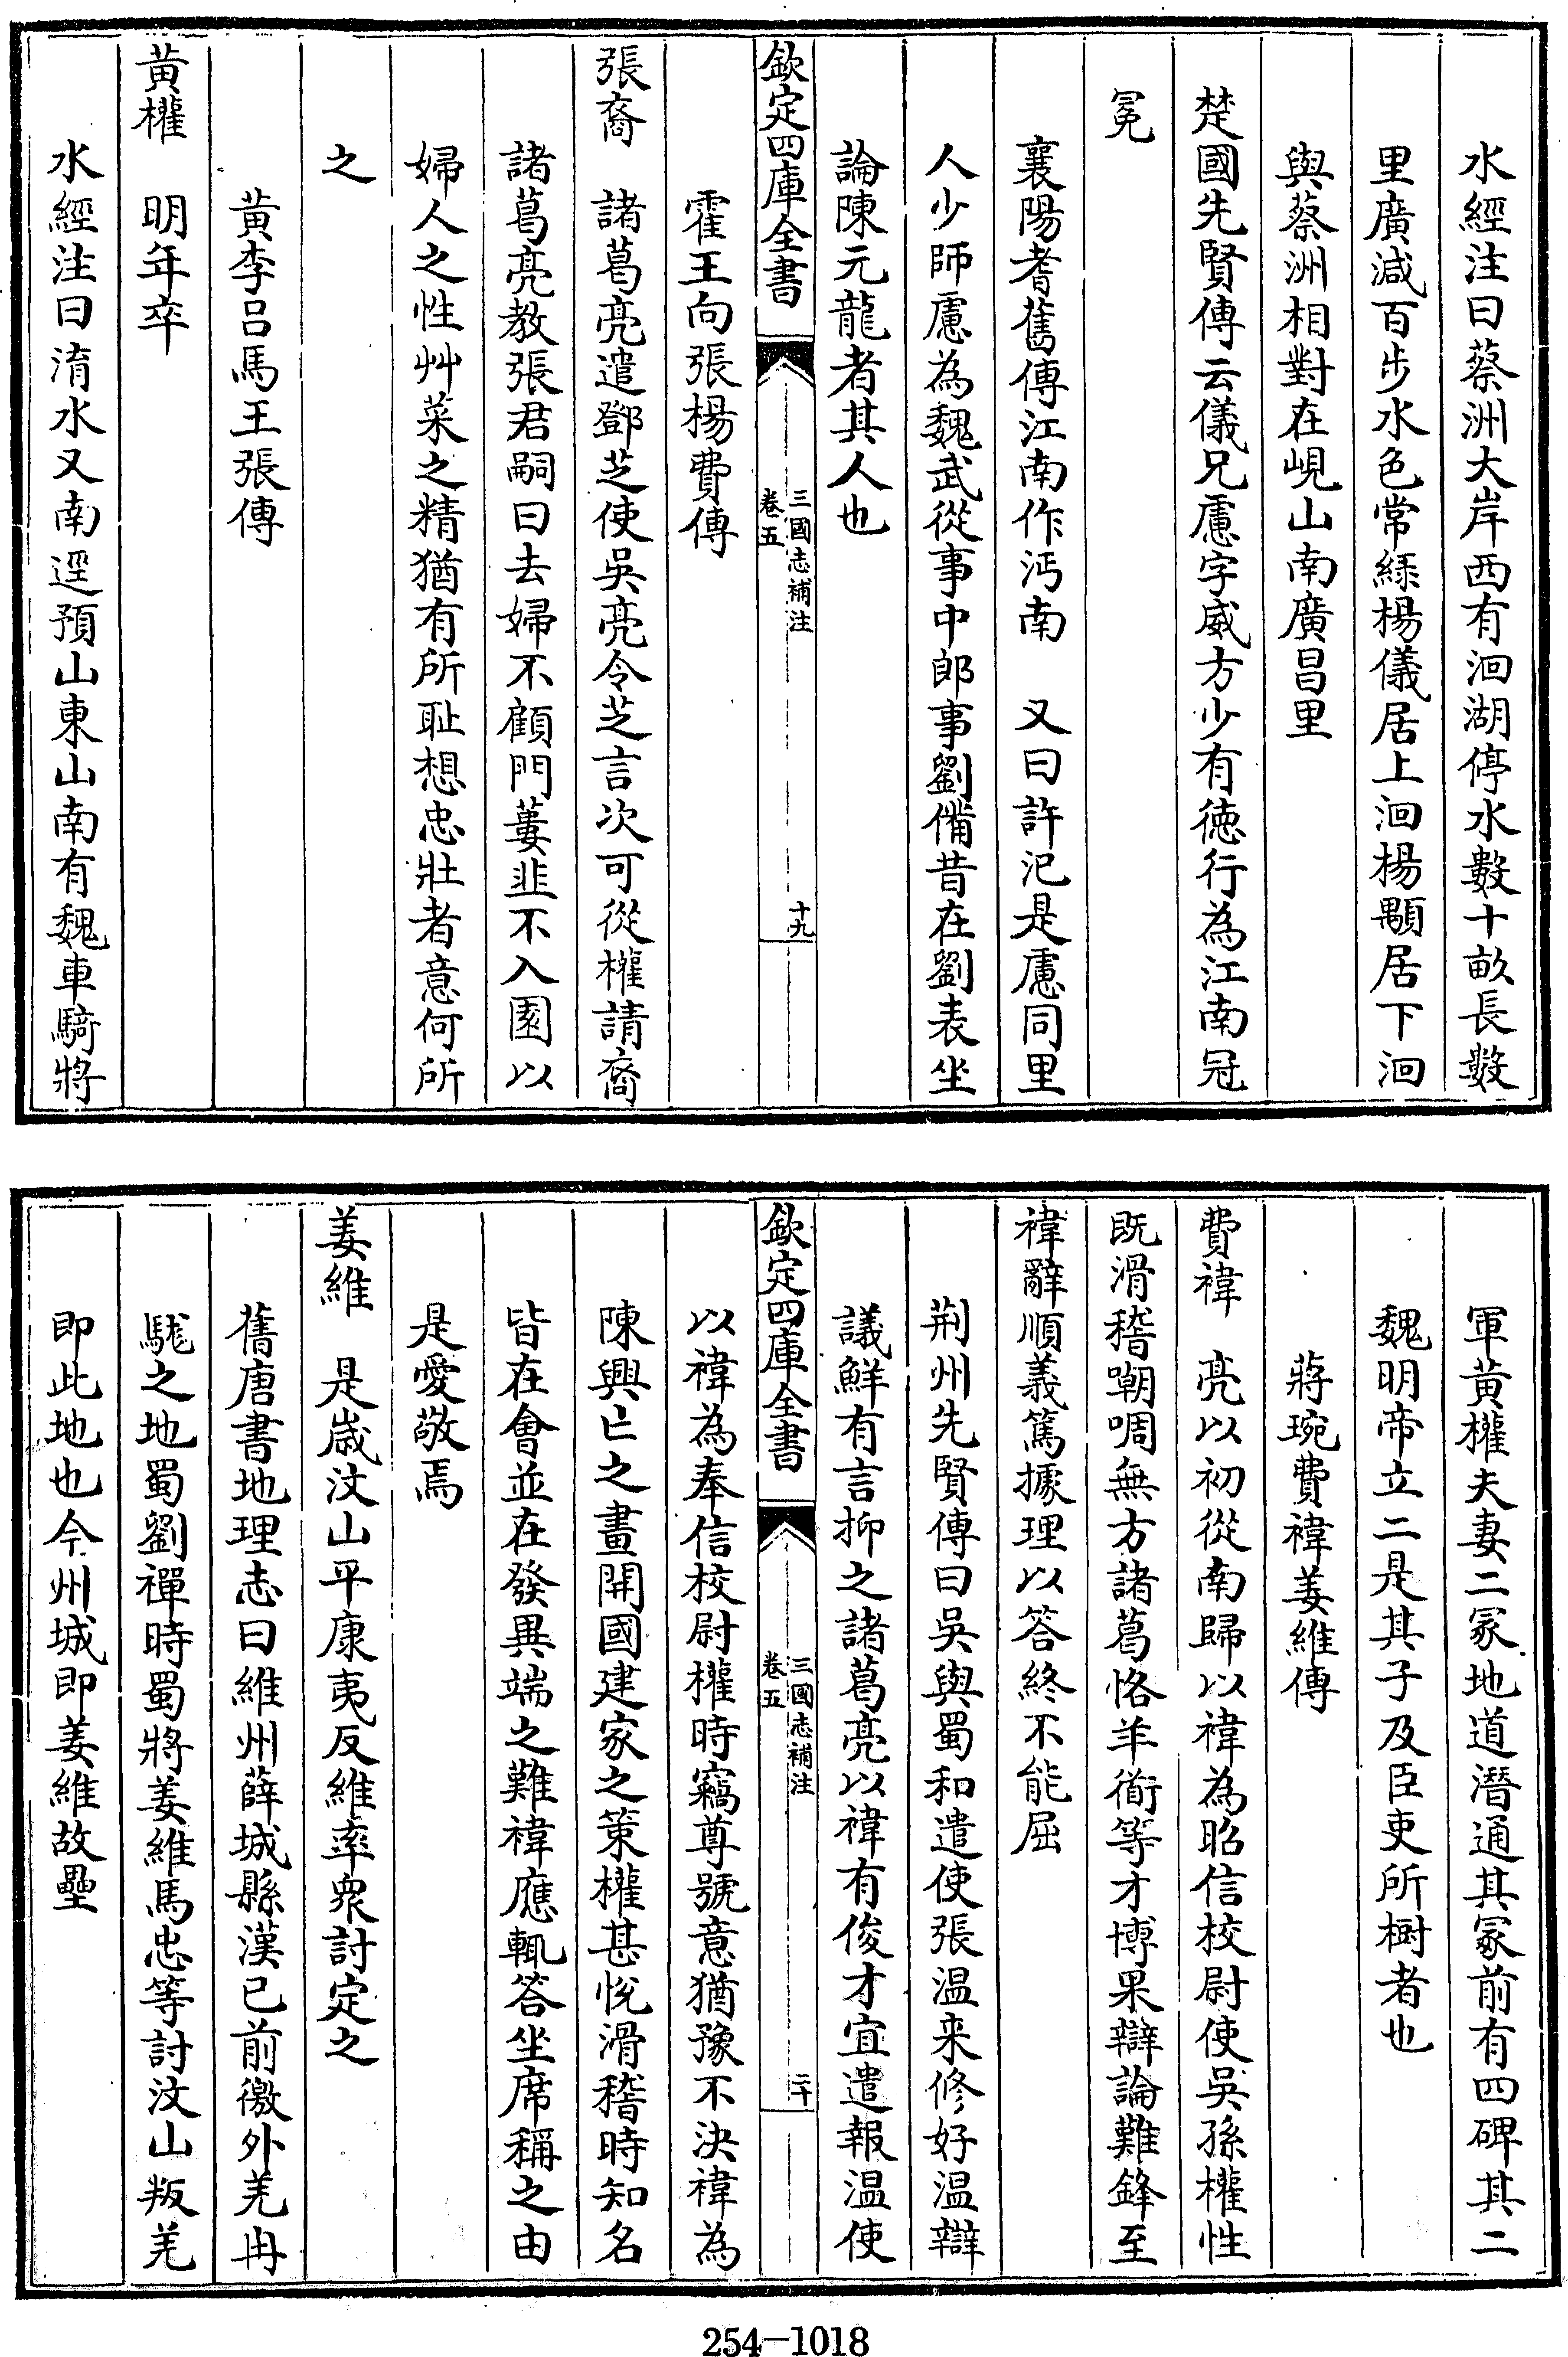 水經注曰蔡洲大岸西有洄湖停水數十畝長數
里廣減百步水色常緑楊儀居上洄楊顒居下洄
與蔡洲相對在峴山南廣昌里
楚國先賢傳云儀兄慮字威方少有徳行為江南冠
冕
襄陽耆舊傳江南作沔南　又曰許汜是慮同里
人少師慮為魏武從事中郎事劉備昔在劉表坐
論陳元龍者其人也
欽定四庫全書
三國志補注
卷五
十九
霍王向張楊費傳
張裔　諸葛亮遣鄧芝使吳亮令芝言次可從權請裔
諸葛亮教張君嗣曰去婦不顧門萋韭不入園以
婦人之性艸菜之精猶有所耻想忠壯者意何所
之
黄李呂馬王張傳
黄權　明年卒
水經注曰淯水又南逕預山東山南有魏車騎將
軍黄權夫妻二冢地道潛通其冢前有四碑其二
魏明帝立二是其子及臣吏所樹者也
蔣琬費禕姜維傳
費禕　亮以初從南歸以禕為昭信校尉使吳孫權性
既滑稽嘲啁無方諸葛恪羊衜等才博果辯論難鋒至
禕辭順義篤據理以答終不能屈
荆州先賢傳曰吳與蜀和遣使張温来修好温辯
議鮮有言抑之諸葛亮以禕有俊才宜遣報温使
欽定四庫全書
三國志補注
卷五
二十
以禕為奉信校尉權時竊尊號意猶豫不決禕為
陳興亡之畫開國建家之策權甚悅滑稽時知名
皆在會並在發異端之難禕應輒答坐席稱之由
是愛敬焉
姜維　是歳汶山平康夷反維率衆討定之
舊唐書地理志曰維州薛城縣漢已前徼外羌冉
駹之地蜀劉禪時蜀將姜維馬忠等討汶山叛羌
即此地也今州城即姜維故壘
254-1018